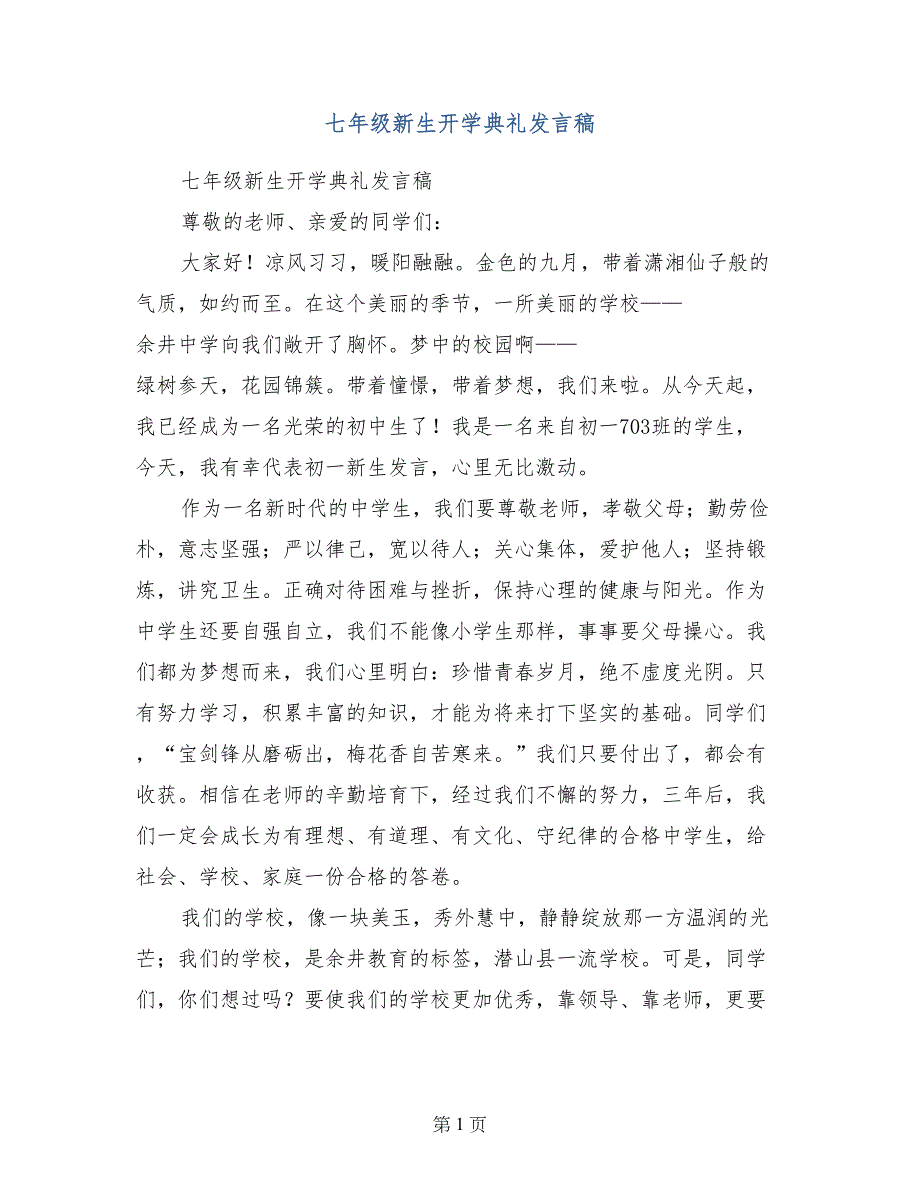 七年级新生开学典礼发言稿
七年级新生开学典礼发言稿
尊敬的老师、亲爱的同学们：
大家好！凉风习习，暖阳融融。金色的九月，带着潇湘仙子般的
气质，如约而至。在这个美丽的季节，一所美丽的学校——
余井中学向我们敞开了胸怀。梦中的校园啊——
绿树参天，花园锦簇。带着憧憬，带着梦想，我们来啦。从今天起，
我已经成为一名光荣的初中生了！我是一名来自初一703班的学生，
今天，我有幸代表初一新生发言，心里无比激动。
作为一名新时代的中学生，我们要尊敬老师，孝敬父母；勤劳俭
朴，意志坚强；严以律己，宽以待人；关心集体，爱护他人；坚持锻
炼，讲究卫生。正确对待困难与挫折，保持心理的健康与阳光。作为
中学生还要自强自立，我们不能像小学生那样，事事要父母操心。我
们都为梦想而来，我们心里明白：珍惜青春岁月，绝不虚度光阴。只
有努力学习，积累丰富的知识，才能为将来打下坚实的基础。同学们
，“宝剑锋从磨砺出，梅花香自苦寒来。”我们只要付出了，都会有
收获。相信在老师的辛勤培育下，经过我们不懈的努力，三年后，我
们一定会成长为有理想、有道理、有文化、守纪律的合格中学生，给
社会、学校、家庭一份合格的答卷。
我们的学校，像一块美玉，秀外慧中，静静绽放那一方温润的光
芒；我们的学校，是余井教育的标签，潜山县一流学校。可是，同学
们，你们想过吗？要使我们的学校更加优秀，靠领导、靠老师，更要
第 1 页